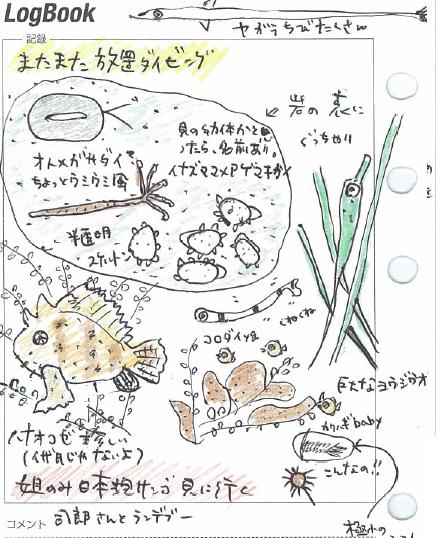 LogBook
ヤガラちびたくさん
記録
またまた放置ダイビング
岩の裏に
びっちり
貝の幼体かと思
ったら、名前あり。
イナズママメアゲマキガイ
オトメガサダイ
ちょっとウミウシ風
半透明
スケルトン
くねくね
コロダイ
巨大なヨウジウオ
ハオコゼ 珍しい
(伊豆じゃないよ)
baby
こんなの!!
姐のみ日本抱サンゴ見に行く
コメント 司郎さんとランデブー
極小の